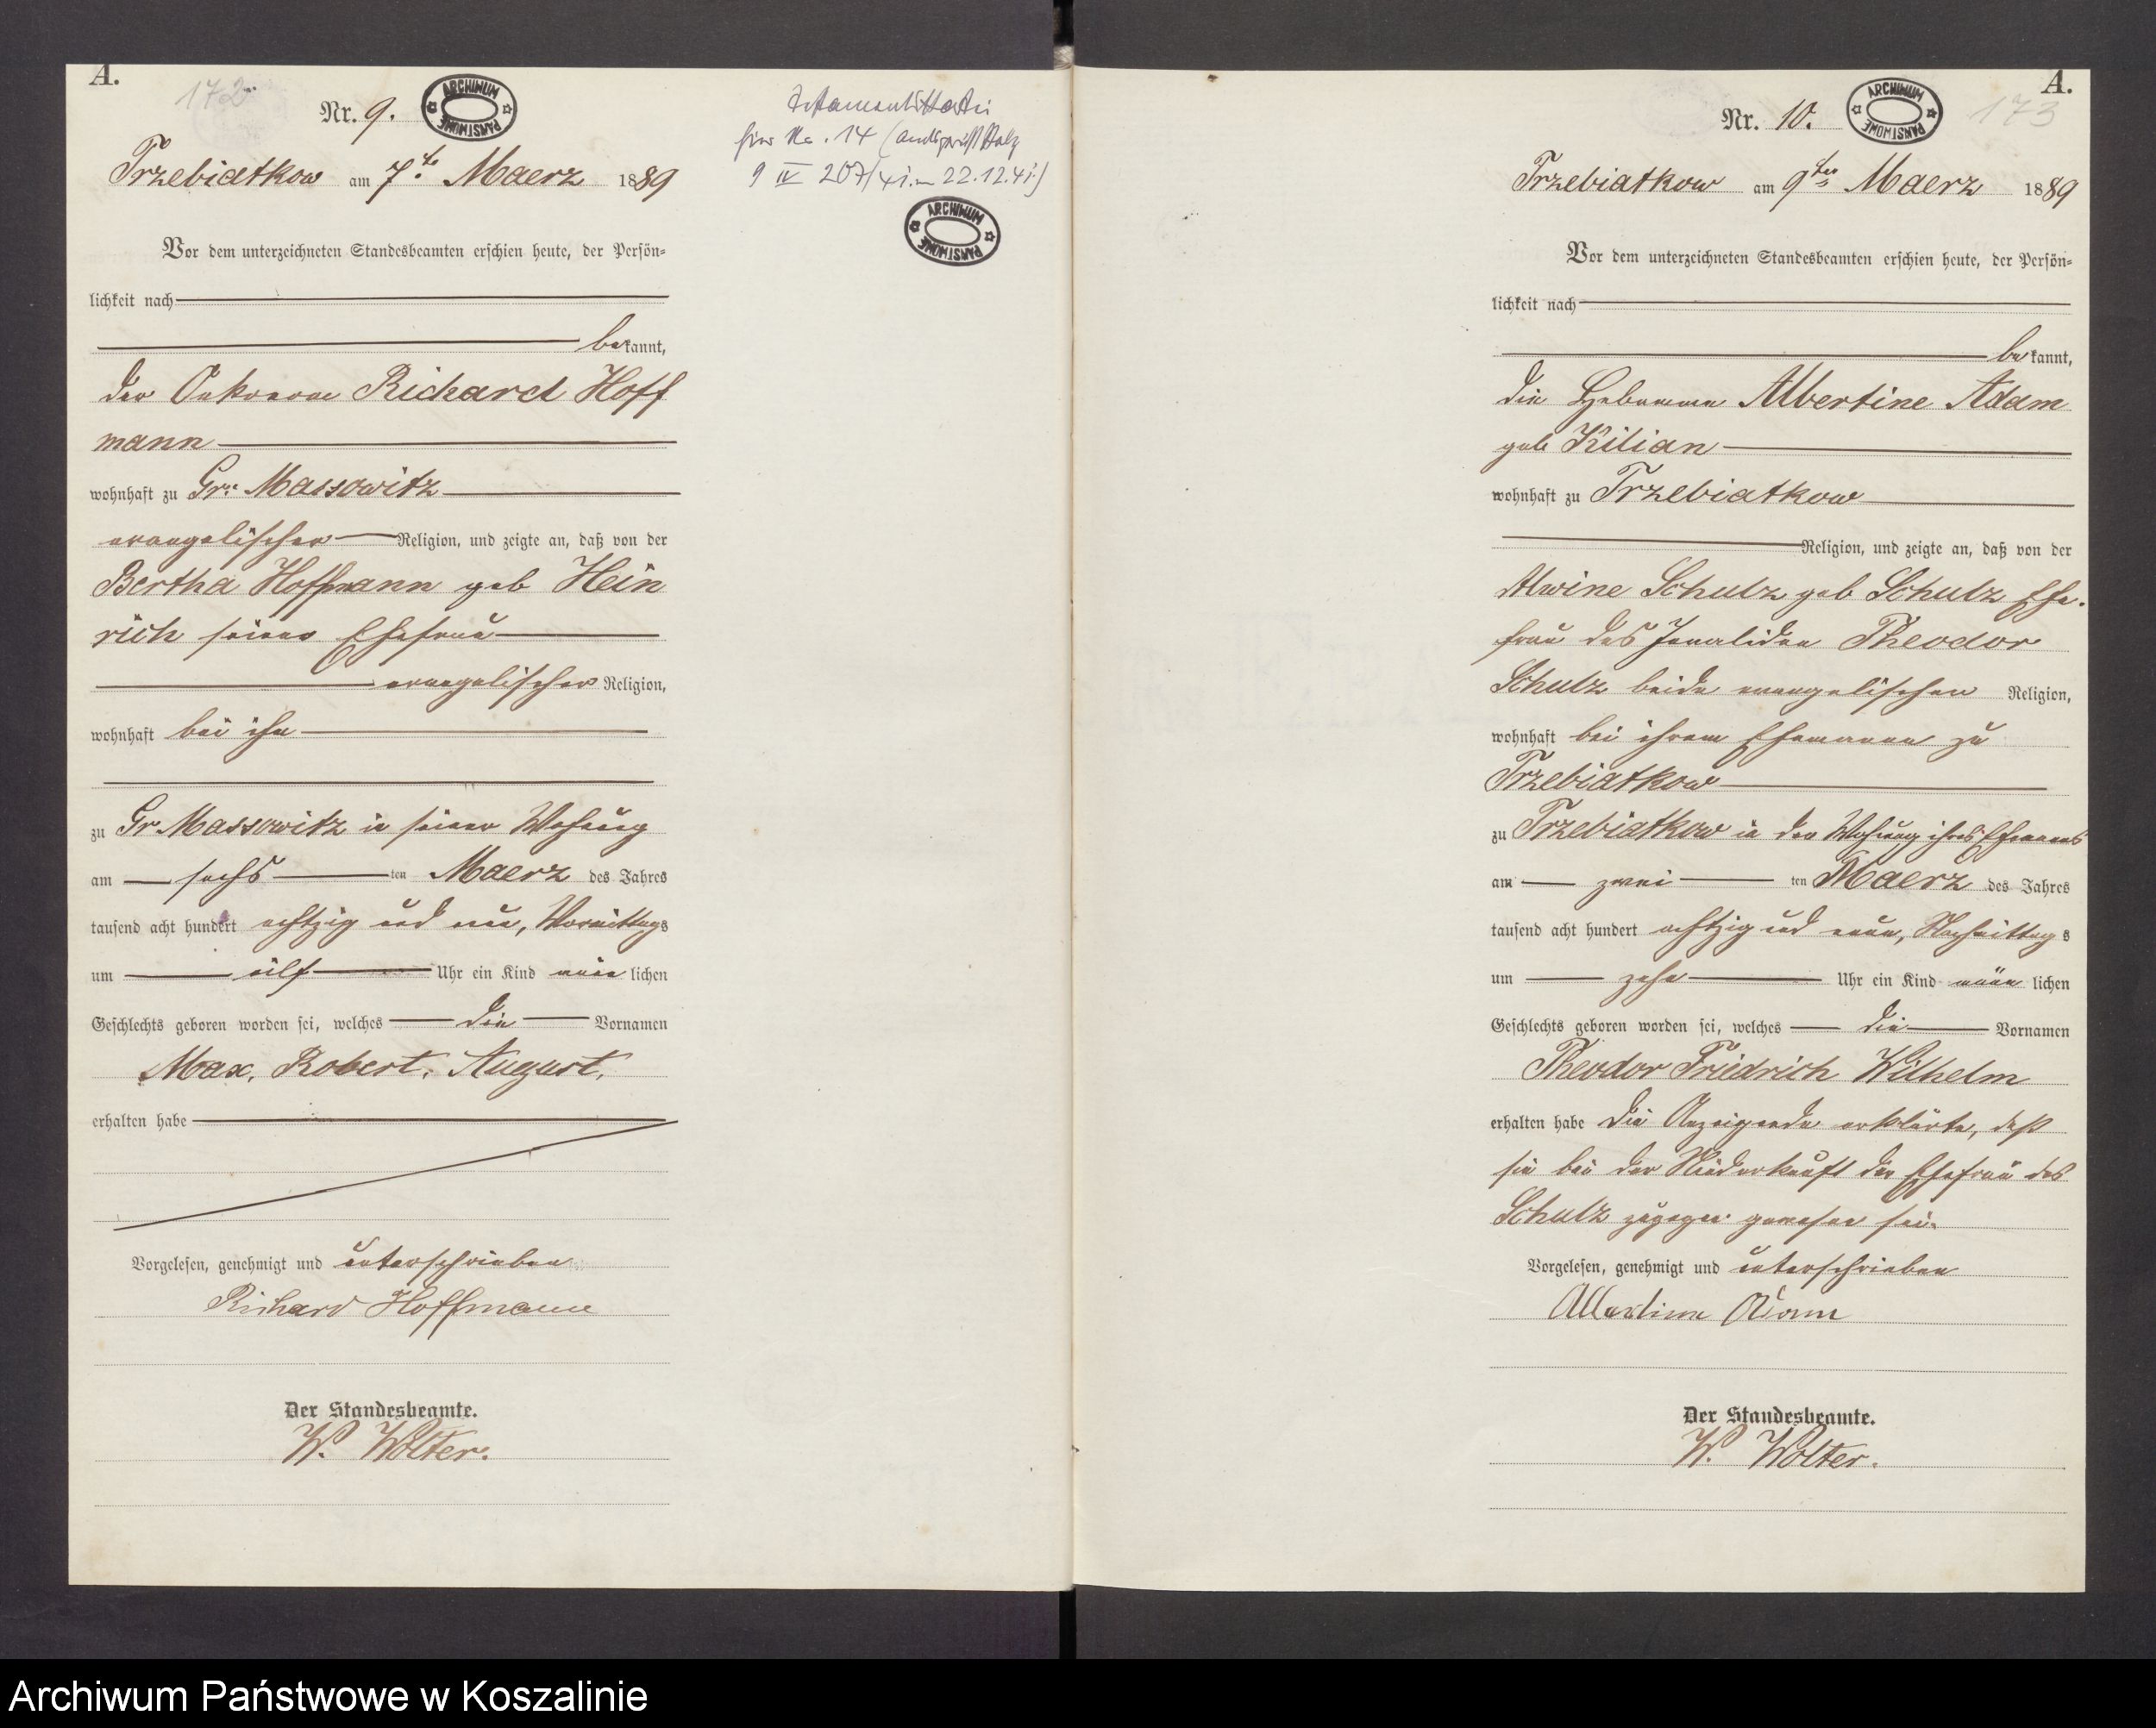 A.
172
Nr. 9.
ARCHIWUM PAŃSTWOWE
Trzebiatkow am 7ten Maerz 1889
Vor dem unterzeichneten Standesbeamten erschien heute, der Persön-
lichkeit nach
bekannt,
der Oekonom Richard Hoff
mann
wohnhaft zu Gr. Massowitz
evangelischer Religion, und zeigte an, daß von der
Bertha Hoffmann geb Hein
rich seiner Ehefrau
evangelischer Religion,
wohnhaft bei ihm
zu Gr Massowitz in seiner Wohnung
am sechs ten Maerz des Jahres
tausend acht hundert achtzig und neun, Vormittags
um eilf Uhr ein Kind männlichen
Geschlechts geboren worden sei, welches die Vornamen
Max, Robert, August,
erhalten habe
Vorgelesen, genehmigt und unterschrieben
Richard Hoffmann
Der Standesbeamte.
W. Wolter.
für No. 14 (Amtsgericht Stolp
9 IV 207/41 22.12.41)
ARCHIWUM PAŃSTWOWE
A.
173
Nr. 10.
ARCHIWUM PAŃSTWOWE
Trzebiatkow am 9ten Maerz 1889
Vor dem unterzeichneten Standesbeamten erschien heute, der Persön-
lichkeit nach
bekannt,
die Hebamme Albertine Adam
geb Kilian
wohnhaft zu Trzebiatkow
Religion, und zeigte an, daß von der
Alwine Schulz geb Schulz Ehe-
frau des Invaliden Theodor
Schulz beide evangelischen Religion,
wohnhaft bei ihrem Ehemann zu
Trzebiatkow
zu Trzebiatkow in der Wohnung ihres Ehemanns
am zwei ten Maerz des Jahres
tausend acht hundert achtzig und neun, Nachmittags
um zehn Uhr ein Kind männlichen
Geschlechts geboren worden sei, welches die Vornamen
Theodor Friedrich Wilhelm
erhalten habe die Anzeigende erklärte, daß
sie bei der Niederkunft der Ehefrau des
Schulz zugegen gewesen sei.
Vorgelesen, genehmigt und unterschrieben
Albertine Adam
Der Standesbeamte.
W. Wolter.
Archiwum Państwowe w Koszalinie